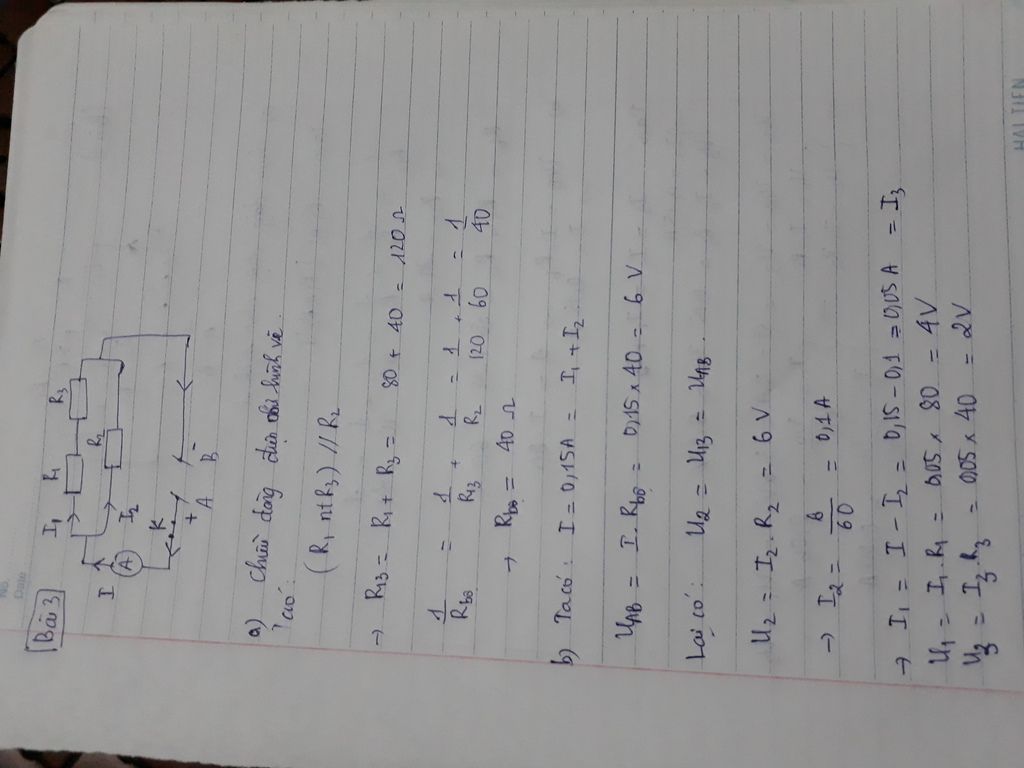 No.
Date
Bài 3
I1 R1 R3
I R2
A I2
K
+ -
A B
a) Chiều dòng điện như hình vẽ.
Ta có:
(R1 nt R3) // R2
→ R13 = R1 + R3 = 80 + 40 = 120 Ω
1/Rtđ = 1/R13 + 1/R2 = 1/120 + 1/60 = 1/40
→ Rtđ = 40 Ω
b) Ta có: I = 0,15A = I1 + I2
UAB = I. Rtđ = 0,15 × 40 = 6 V
Lại có: U2 = U13 = UAB.
U2 = I2. R2 = 6 V
→ I2 = 6/60 = 0,1A
→ I1 = I - I2 = 0,15 - 0,1 = 0,05A = I3
U1 = I1. R1 = 0,05 × 80 = 4V
U3 = I3. R3 = 0,05 × 40 = 2V
HẢI TIẾN